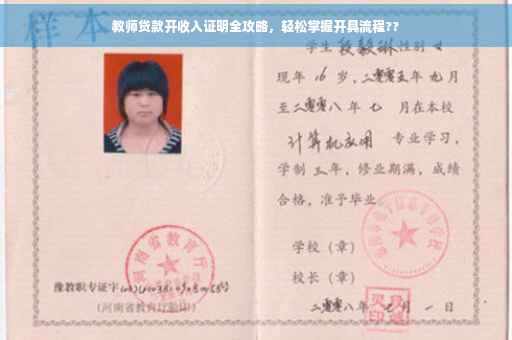 教师贷款开收入证明全攻略，轻松掌握开具流程??
样本
学生段毅琳性别女
现年16岁，二零零五年九月
至二零零八年七月在本校
计算机应用 专业学习，
学制三年，修业期满，成绩
合格，准予毕业
学校（章）
校长（章）
二零零八年 月一日
河南省教育厅
豫教职专证字
（河南省教育厅验印）